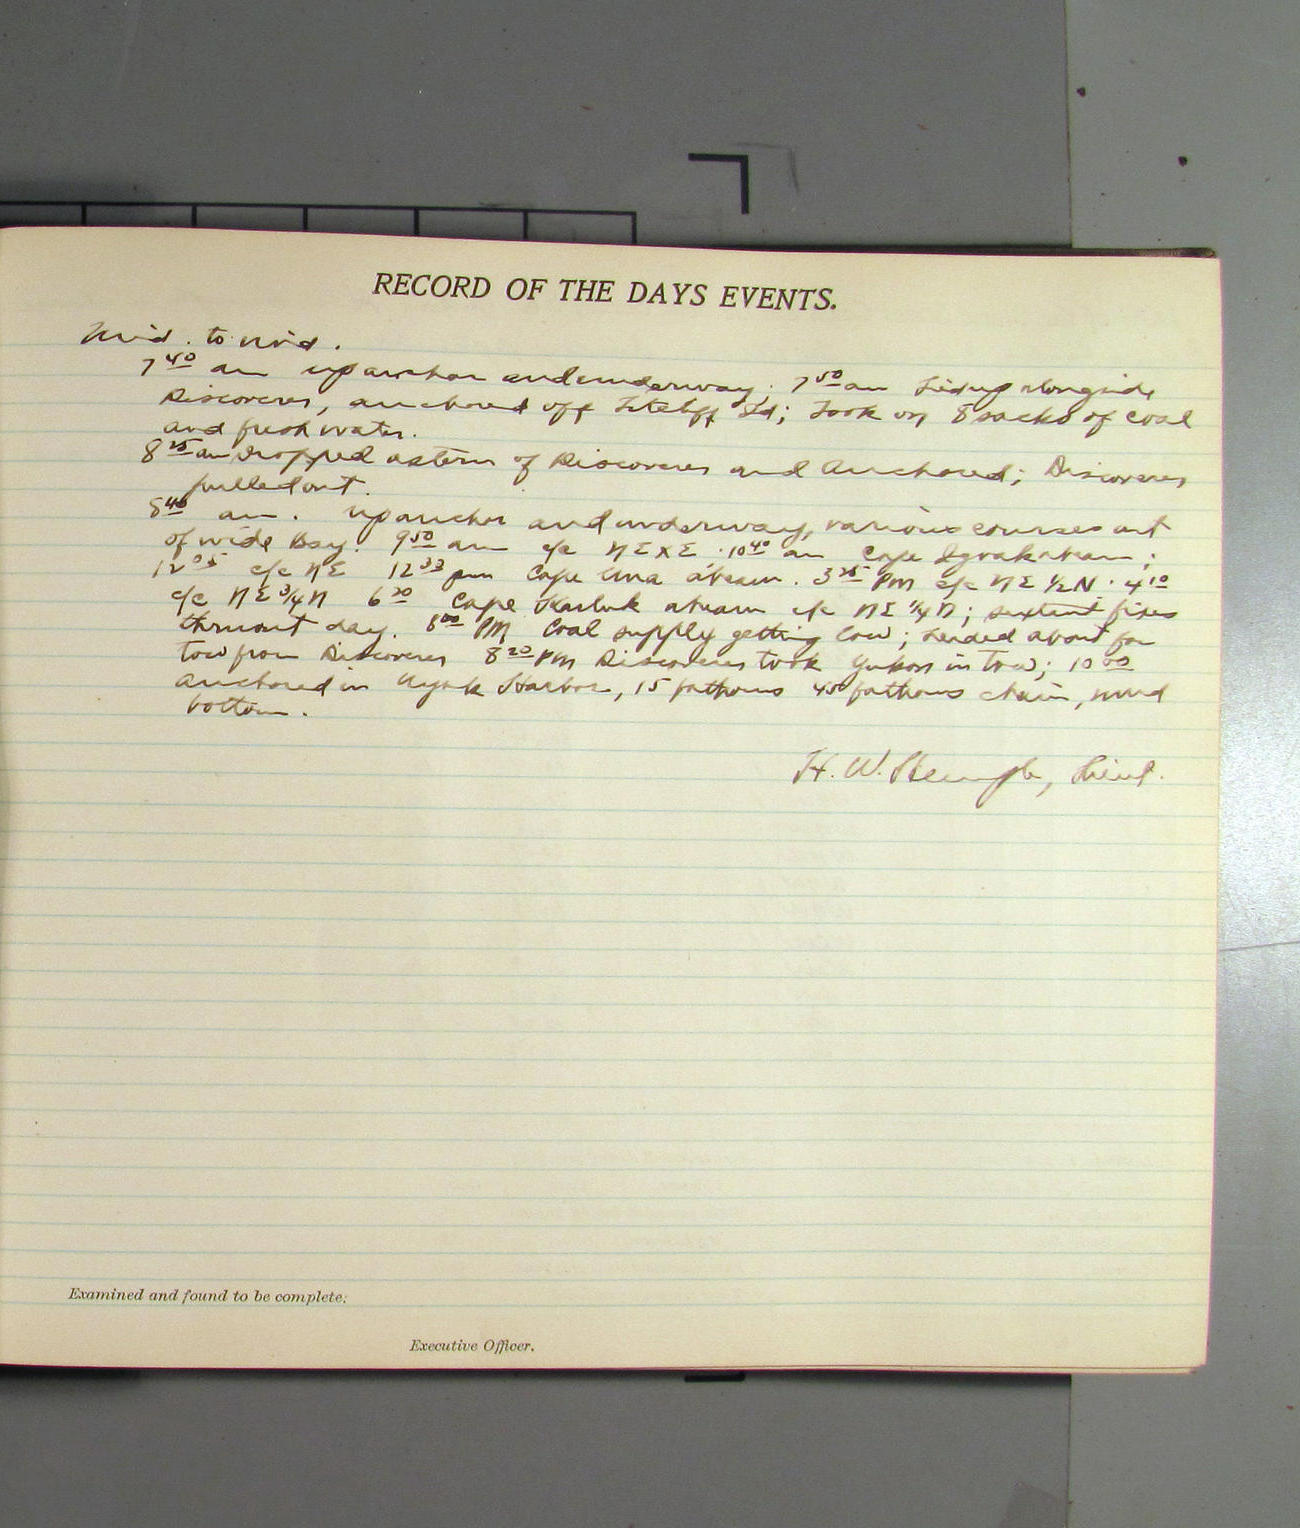 RECORD OF THE DAYS EVENTS.
Mid. to Mid.
7 40 am up anchor and underway; 7 50 am tied up alongside
Discoverer, anchored off Id; Took on 8 sacks of coal
and fresh water.
8 25 am dropped astern of Discoverer and Anchored; Discoverer
pulled out.
8 40 am. up anchor and underway, various courses out
of Wide Bay. 9 50 am c/c NE x E . 10 40 am Cape abeam;
12 05 c/c NE 12 33 pm Cape abeam. 3 25 PM c/c NE 1/2 N . 4 10
c/c NE 3/4 N 6 20 Cape Karluk abeam c/c NE 1/4 N; sextant fixes
thruout day. 8 00 PM Coal supply getting low; headed about for
tow from Discoverer 8 20 PM Discoverer took Yukon in tow; 10 00
Anchored in Uyak Harbor, 15 fathoms 45 fathoms chain, mud
bottom.
H. W. Hemple, Lieut.
Examined and found to be complete:
Executive Officer.